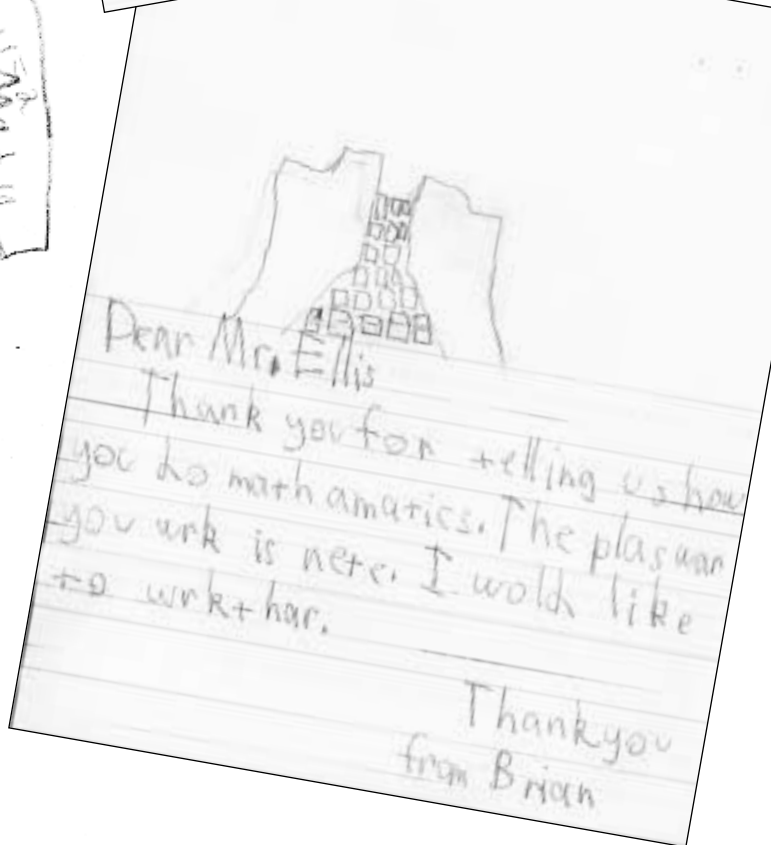 Dear Mr. Ellis
Thank you for telling us how
you do mathamatics. The plas wan
you wrk is nete. I wold like
to wrk thar.
Thankyou
from Brian